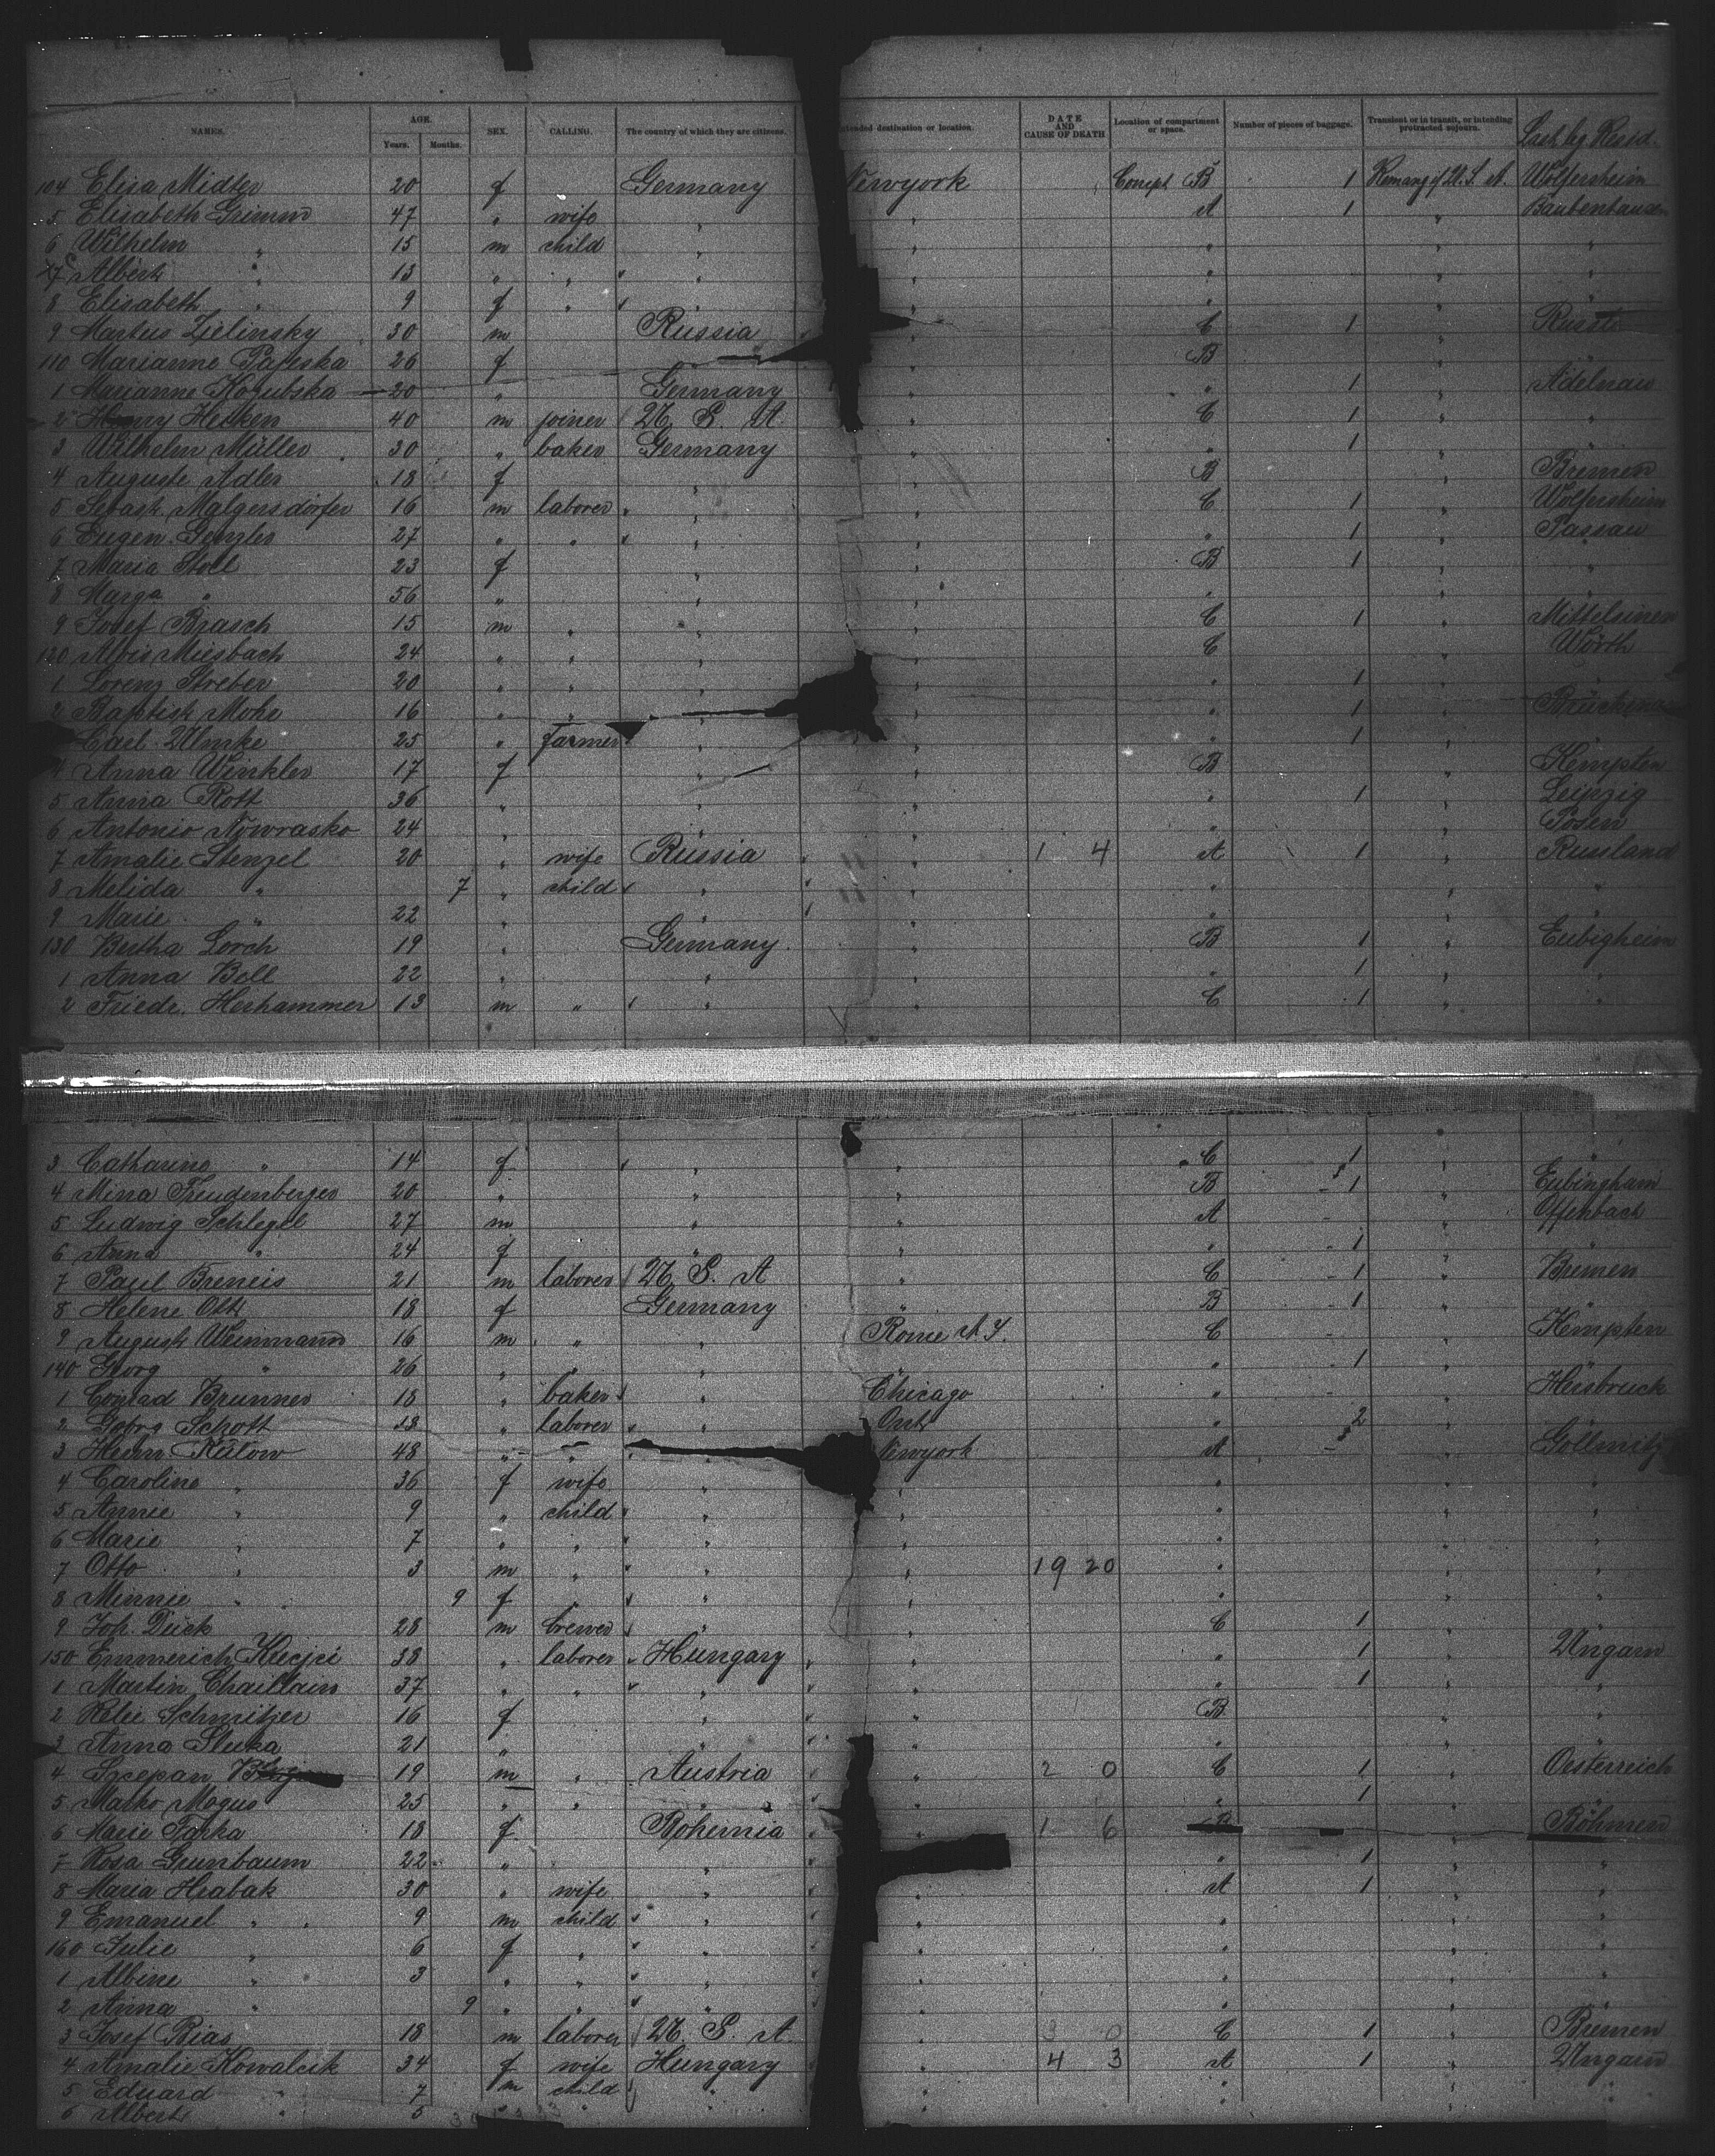 NAMES. AGE. Years. Months. SEX. CALLING. The country of which they are citizens. Intended destination or location. DATE AND CAUSE OF DEATH Location of compartment or space. Number of pieces of baggage. Transient or in transit, or intending protracted sojourn.
104 Elisa Midter 20 f Germany Newyork Compt B 1 U. S. A. Wölfersheim
5 Elisabeth Grimm 47 " wife " " A 1 "
6 Wilhelm " 15 m child " " " " "
7 Albert " 13 " " " " " " "
8 Elisabeth " 9 f " " " " "
9 Martus Zielinsky 30 m Russia " C 1 "
110 Marianne 26 f " B "
1 Marianne Kozubska 20 " Germany " " 1 " Adelnau
2 Henry Heeken 40 m joiner U. S. A. " C 1 " "
3 Wilhelm Müller 30 " baker Germany " " 1 "
4 Auguste Adler 18 f " " B " Bremen
5 Sebast. Malgersdörfer 16 m laborer " " C 1 " Wölfersheim
6 Eugen Genzler 27 " " " " " 1 " Passau
7 Maria Stoll 23 f " " B 1 " "
8 Marga " 56 " " " " " "
9 Josef Brasch 15 m " " " C 1 " Mittelsinen
120 Alois Miesbach 24 " " " " C " Wörth
1 Lorenz Streber 20 " " " " " 1 " "
2 Baptist Mohr 16 " " " " " 1 "
Carl Ulmke 25 " farmer " " " 1 "
4 Anna Winkler 17 f " " B " Kempten
5 Anna Rott 36 " " " " 1 " Leipzig
6 Antonio Nowrasko 24 " " " " " Posen
7 Amalie Stenzel 20 " wife Russia " 1 4 A 1 " Russland
8 Melida " 7 " child " " " " "
9 Marie " 22 " " " " " "
130 Bertha Lorch 19 " Germany " B 1 " Eubigheim
1 Anna Boll 22 " " " " 1 " "
2 Friedr. Herhammer 13 m " " " C 1 " "
3 Catharine " 14 f " " C 1 " "
4 Mina Freudenberger 20 " " " B 1 " Eubingham
5 Ludwig Schlegel 27 m " " A " Offenbach
6 Anna " 24 f " " " 1 "
7 Paul Breneis 21 m laborer U. S. A " C 1 " Bremen
8 Helene Ott 18 f Germany " B 1 "
9 August Weinmann 16 m " " Rome N. Y. C " Kempten
140 Georg " 26 " " " " " 1 "
1 Conrad Brunner 18 " baker " Chicago " " Hersbruck
2 Georg Schott 18 " laborer " " 2 "
3 Külow 48 " " " Newyork A " Göllmitz
4 Caroline " 36 f wife " " " " "
5 Annie " 9 " child " " " " "
6 Marie " 7 " " " " " " "
7 Otto " 3 m " " " 19 20 " " "
8 Minnie " 9 f " " " " " "
9 Joh. Dück 28 m brewer " " C 1 "
150 Emmerich 38 " laborer Hungary " " 1 " Ungarn
1 Martin Chaillain 37 " " " " " 1 " "
2 Schmitzer 16 f " " B " "
3 Anna Sluka 21 " " " " " "
4 Szcepan 19 m " Austria " 2 0 C 1 " Oesterreich
5 Matko Mogus 25 " " " " " 1 " "
6 Marie 18 f Bohemia 1 6 B " Böhmen
7 Rosa Grunbaum 22 " " " " 1 " "
8 Maria Hrabak 30 " wife " " A 1 " "
9 Emanuel " 9 m child " " " " "
160 Julie " 6 f " " " " " "
1 Albine " 3 " " " " " " "
2 Anna " 9 " " " " " " "
3 Josef Bias 18 m laborer U. S. A. " 3 0 C 1 " Bremen
4 Amalie Kowalcik 34 f wife Hungary " 4 3 A 1 " Ungarn
5 Eduard " 7 m child " " " " "
6 Albert " 5 " " " " " "